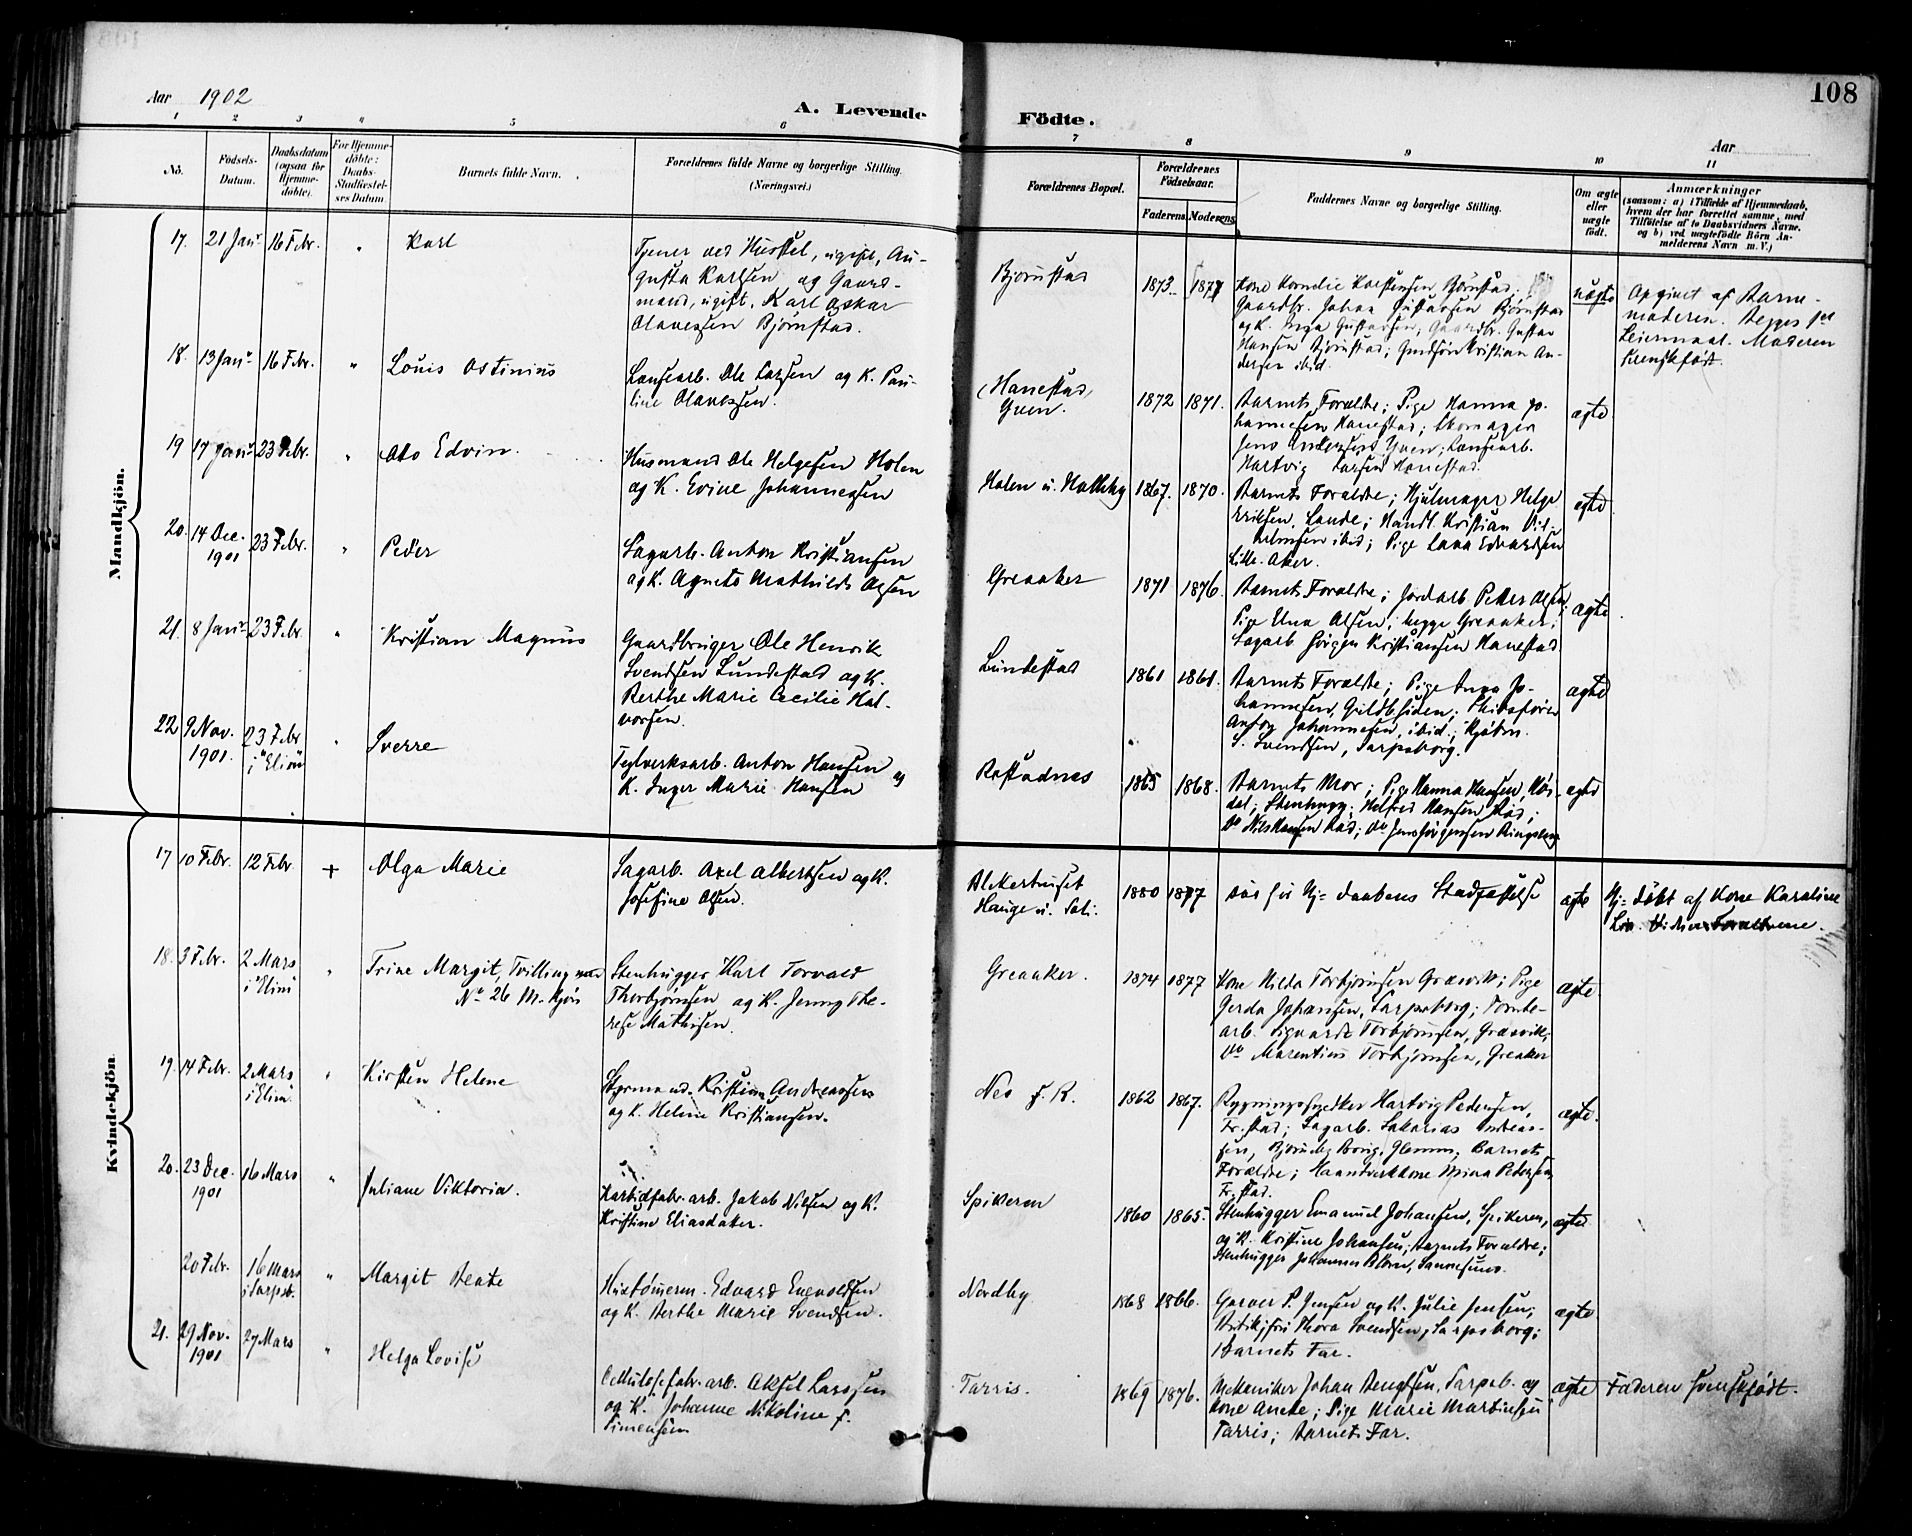 108
Aar 1902
A. Levende
Födte.
Aar
1 2 3 4 5 6 7 8 9 10 11
No.
Födsels-
Datum.
Daabsdatum
(ogsaa for
Hjemme-
döbte).
For Hjemme-
döbte:
Daabs-
Stadfæstel-
ses Datum.
Barnets fulde Navn.
Forældrenes fulde Navne og borgerlige Stilling.
(Næringsvei.)
Forældrenes Bopæl.
Forældrenes
Födselsaar.
Faderens. Moderens.
Faddernes Navne og borgerlige Stilling.
Om ægte
eller
uægte
födt.
Anmærkninger
(saasom: a) i Tilfælde af Hjemmedaab,
hvem der har forrettet samme, med
Tilföielse af to Daabsvidners Navne,
og b) ved uægtefödte Börn An-
melderens Navn m. V.)
Mandkjön.
17. 21 Janr 16 Febr. " Karl
Tjener ved Husstel, ugift, Au-
gusta Karlsen og Gaard-
mand, ugift, Karl Oskar
Olavessen Bjørnstad.
Bjørnstad
1873 1877
Kone Kornelie Karstensen Bjørnstad;
Gaardbr. Johan Gustavsen Bjørnstad
og K. Inga Gustavsen; Gaardbr. Gustav
Hansen Bjørnstad; Gmdsøn Kristian An-
dersen ibid.
uægte
Opgivet af Barne-
moderen. Begges 1st
Leiermaal. Moderen
svenskfødt.
18. 13 Janr 16 Febr. " Louis Ostinius
Landsearb. Ole Larsen og K. Pau-
line Olavessen.
Hanestad
Green.
1872 1871.
Barnets Forældre; Pige Hanna Jo-
hannesen Hanestad; Skomager
Jens Andersen; Landsearb.
Hartvig Larsen Hanestad.
ægte
19 17 Janr 23 Febr. " Otto Edvin.
Husmand Ole Helgesen Holen
og K. Evine Johannessen
Holen u. Hatteby
1867. 1870.
Barnets Forældre; Hjulmager Helge
Eriksen, Lande; Handl. Kristian Vil-
helmsen ibid; Pige Lava Edvardsen
Lille-Aker.
ægte
20. 14 Dec. 23 Febr. " Peder
1901
Sagarb. Anton Kristiansen
og K. Agnete Mathilde Olsen
Greaaker
1871 1876.
Barnets Forældre; Jordarb Peder Olsen
Pige Una Olsen, begge Greaaker;
Sagarb Jörgen Kristiansen Hanestad
ægte
21. 8 Janr 23 Febr. " Kristian Magnus
Gaardbruger Ole Henrik
Svendsen Lundestad og K.
Berthe Marie Cecilie Hal-
vorsen.
Lundestad
1861 1861.
Barnets Forældre; Pige Anna Jo-
hannesen, Guldbsiden; Skibsfører
Anton Johannesen, ibid.; Kjøbm.
S. Svendsen, Sarpsborg.
ægte
22 9 Nov. 23 Febr " Sverre
1901. i "Elim"
Teglverksarb. Anton Hansen og
K. Inger Marie Hansen
Rostadnes
1865 1868.
Barnets Mor; Pige Hanna Hansen, Møs-
dal; Stenhugg. Helfred Hansen Rød;
do Nils Hansen Rød; do Jens Jørgensen Ringsberg
ægte
Kvindekjön.
17 10 Febr. 12 Febr + Olga Marie
Sagarb. Axel Albertsen og K.
Josefine Olsen.
Alekerhuset
Hauge u. Soli.
1880 1877
døde før Hj= daabens Stadfæstelse
ægte
Hj= døbt af Kone Karoline
Lia. Vidner Forældrene.
18. 3 Febr. 2 Mars " Trine Margit, Tvilling med
i "Elim" No 26 M-kjøn
Stenhugger Karl Torvald
Thorbjørnsen og K. Jenny The-
rese Mathisen.
Greaaker.
1874 1877
Kone Hilda Torbjørnsen Græsvik; Pige
Gerda Johansen, Sarpsborg; Tomte-
arb. Sigvard Torbjørnsen, Græsvik;
do Marentius Torbjørnsen, Greaker
ægte.
19. 14 Febr. 2 Mars " Kirsten Helene
i Elim.
Styrmand Kristian Andreassen
og K. Helene Kristiansen.
Nes f. R.
1862 1867.
Bygningssnedker Hartvig Pedersen,
Fr.stad; Sagarb. Sakarias Andreas-
sen, Bjørneby Borg, Glemm; Barnets
Forældre; Haandverkkone Mina Pedersen
Fr.stad.
ægte.
20. 23 Dec. 16 Mars " Juliane Viktoria.
1901
Karbidfabr.arb. Jakob Nilsen og K.
Kristine Eliasdaker.
Spikeren
1860 1865.
Stenhugger Emanuel Johansen, Spikeren,
og K. Kristine Johansen; Barnets Forældre;
Stenhugger Johannes Ekorn, Sannesund.
ægte
20 Febr. 16 Mars " Margit Beate
i Sarpsb.
Hustømrerm. Edvard Enevoldsen
og K. Berthe Marie Svendsen.
Nordby
1868 1866.
Garver P. Jensen og K. Julie Jensen;
Butikjfrk Thora Svendsen, Sarpsborg;
Barnets Far.
ægte
21. 29 Nov. 27 Mars " Helga Lovise
1901
Cellulosefabr.arb. Aksel Larssen
og K. Johanne Nikoline f.
Simensen
Tarris.
1869 1876.
Mekaniker Johan Bengtsen, Sarpsb. og
Kone Anette; Pige Marie Martinsen
Tarris; Barnets Far.
ægte
Faderen svenskfødt.